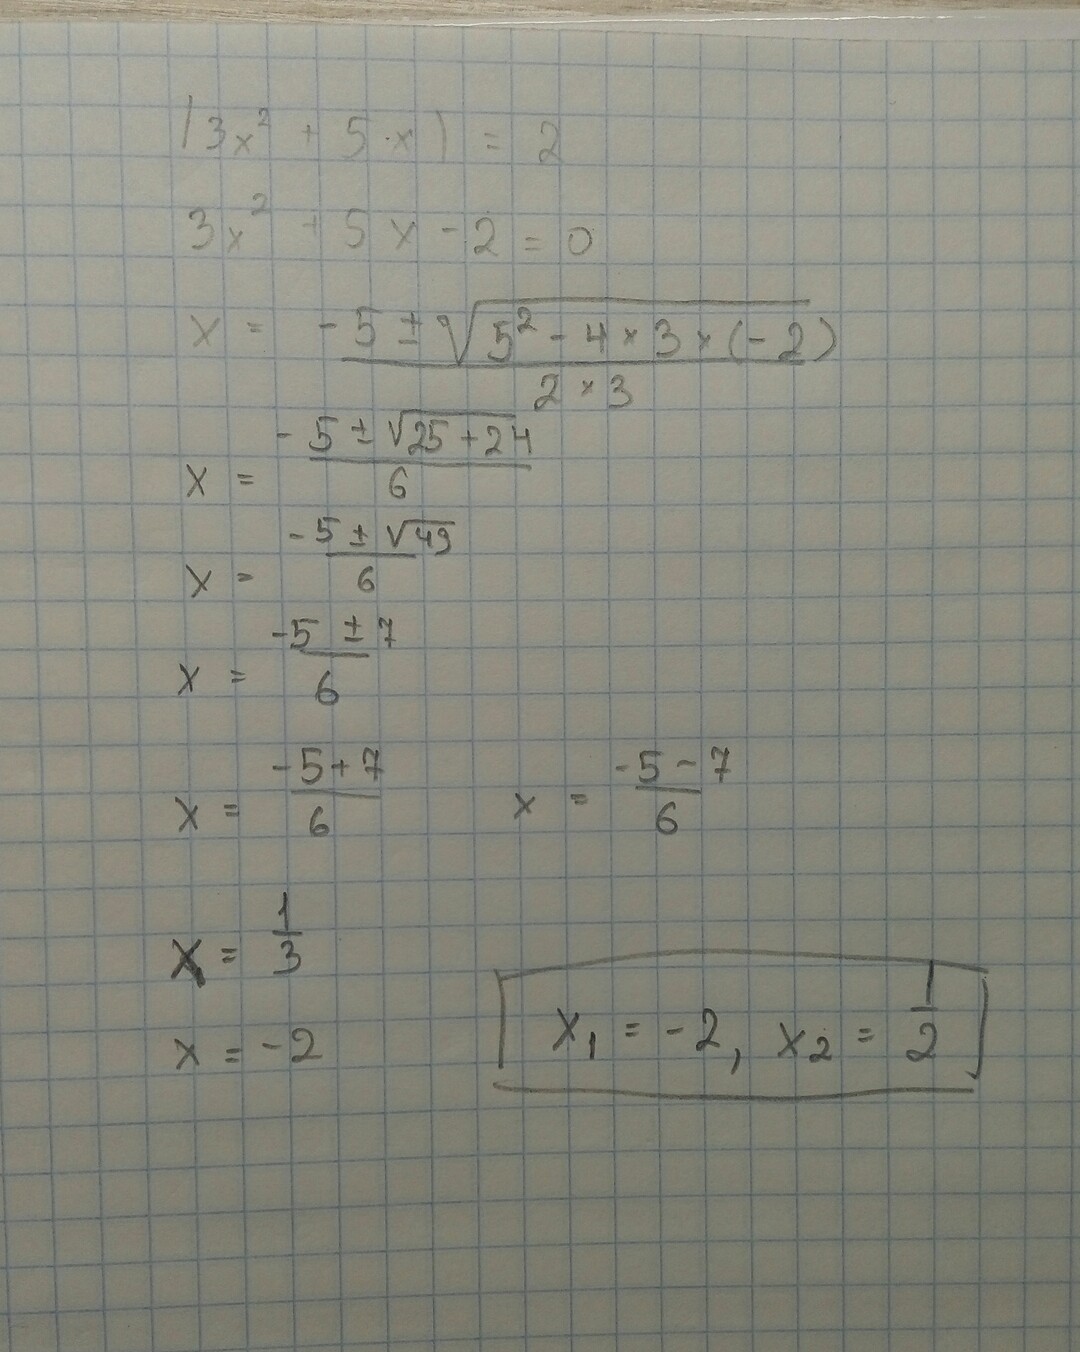 (3x² + 5·x) = 2
3x² + 5x - 2 = 0
x = (-5 ± √(5² - 4 × 3 × (-2))) / (2 × 3)
x = (-5 ± √(25 + 24)) / 6
x = (-5 ± √49) / 6
x = (-5 ± 7) / 6
x = (-5 + 7) / 6    x = (-5 - 7) / 6
x = 1/3
x = -2    x₁ = -2, x₂ = 1/2